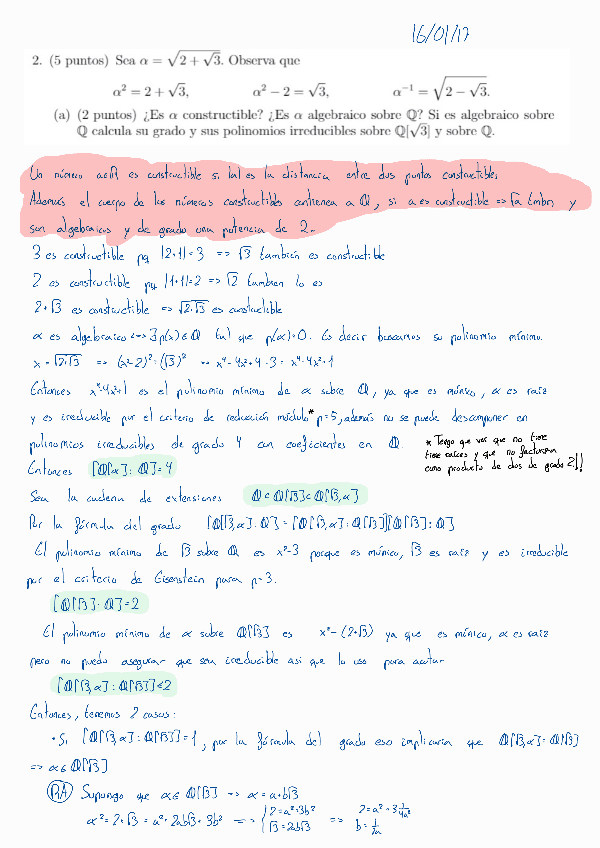 16/01/17
2. (5 puntos) Sea α = √(2 + √3). Observa que
α² = 2 + √3, α² − 2 = √3, α⁻¹ = √(2 − √3).
(a) (2 puntos) ¿Es α constructible? ¿Es α algebraico sobre ℚ? Si es algebraico sobre
ℚ calcula su grado y sus polinomios irreducibles sobre ℚ[√3] y sobre ℚ.
Un número a∈ℝ es constructible si |a| es la distancia entre dos puntos constructibles.
Además el cuerpo de los números constructibles contiene a ℚ, si a es constructible => √a tmbn y
son algebraicos y de grado una potencia de 2.
3 es constructible pq |2+1|=3 => √3 también es constructible
2 es constructible pq |1+1|=2 => √2 también lo es
2+√3 es constructible => √(2+√3) es constructible
α es algebraico <-> ∃p(x)∈ℚ tal que p(α)=0. Es decir buscamos su polinomio mínimo.
x = √(2+√3) => (x²-2)²=(√3)² => x⁴-4x²+4-3 = x⁴-4x²+1
Entonces x⁴-4x²+1 es el polinomio mínimo de α sobre ℚ, ya que es mónico, α es raíz
y es irreducible por el criterio de reducción módulo* p=5, además no se puede descomponer en
polinomios irreducibles de grado 4 con coeficientes en ℚ.
* Tengo que ver que no tiene
tiene raíces y que no factoriza
como producto de dos de grado 2!!
Entonces [ℚ[α]:ℚ]=4
Sea la cadena de extensiones ℚ⊂ℚ[√3]⊂ℚ[√3,α]
Por la fórmula del grado [ℚ[√3,α]:ℚ]=[ℚ[√3,α]:ℚ[√3]][ℚ[√3]:ℚ]
El polinomio mínimo de √3 sobre ℚ es x²-3 porque es mónico, √3 es raíz y es irreducible
por el criterio de Eisenstein para p=3.
[ℚ[√3]:ℚ]=2
El polinomio mínimo de α sobre ℚ[√3] es x²-(2+√3) ya que es mónico, α es raíz
pero no puedo asegurar que sea irreducible así que lo uso para acotar.
[ℚ[√3,α]:ℚ[√3]]≤2
Entonces, tenemos 2 casos:
• Si [ℚ[√3,α]:ℚ[√3]]=1, por la fórmula del grado eso implicaría que ℚ[√3,α]=ℚ[√3]
=> α∈ℚ[√3]
RA Supongo que α∈ℚ[√3] => α=a+b√3
α²=2+√3=a²+2ab√3+3b² => {2=a²+3b² => 2=a²+3 1/4a²
√3=2ab√3 b=1/2a